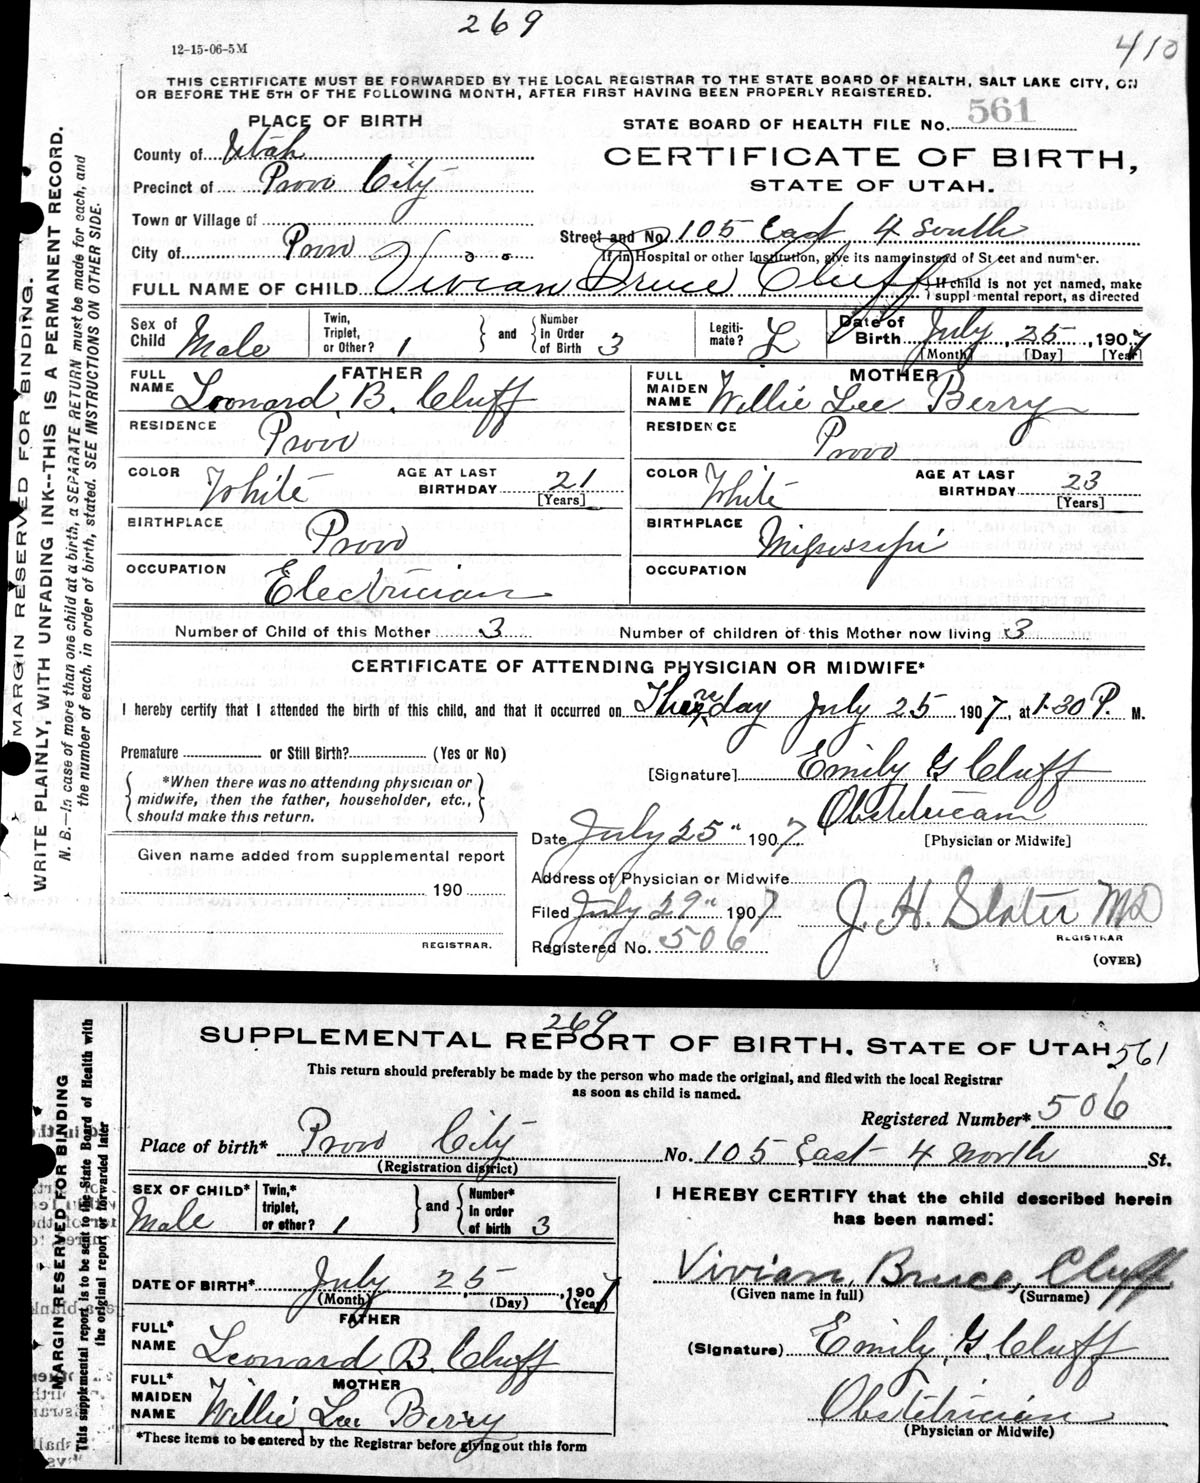 269
12-15-06-5M
410
THIS CERTIFICATE MUST BE FORWARDED BY THE LOCAL REGISTRAR TO THE STATE BOARD OF HEALTH, SALT LAKE CITY, ON
OR BEFORE THE 5TH OF THE FOLLOWING MONTH, AFTER FIRST HAVING BEEN PROPERLY REGISTERED.
PLACE OF BIRTH
STATE BOARD OF HEALTH FILE No. 561
County of Utah
CERTIFICATE OF BIRTH,
Precinct of Provo City
STATE OF UTAH.
Town or Village of
Street and No. 105 East 4 South
City of Provo
If in Hospital or other Institution, give its name instead of Street and number.
FULL NAME OF CHILD Vivian Bruce Cluff
If child is not yet named, make
supplemental report, as directed
Sex of Child Male
Twin, Triplet, or Other? 1
and
Number in Order of Birth 3
Legitimate? L
Date of Birth July 25, 1907
[Month] [Day] [Year]
FATHER
FULL NAME Leonard B. Cluff
MOTHER
FULL MAIDEN NAME Willie Lee Berry
RESIDENCE Provo
RESIDENCE Provo
COLOR White AGE AT LAST BIRTHDAY 21 [Years]
COLOR White AGE AT LAST BIRTHDAY 23 [Years]
BIRTHPLACE Provo
BIRTHPLACE Mississippi
OCCUPATION Electrician
OCCUPATION
Number of Child of this Mother 3 Number of children of this Mother now living 3
CERTIFICATE OF ATTENDING PHYSICIAN OR MIDWIFE*
I hereby certify that I attended the birth of this child, and that it occurred on Thursday July 25 1907, at 1-30 P. M.
Premature or Still Birth? (Yes or No)
[Signature] Emily G Cluff
*When there was no attending physician or
midwife, then the father, householder, etc.,
should make this return.
Obstetrician
Date July 25" 1907
[Physician or Midwife]
Given name added from supplemental report
Address of Physician or Midwife
190
Filed July 29" 1907
J. H. Slater MD
REGISTRAR
REGISTRAR.
Registered No. 506
(OVER)
MARGIN RESERVED FOR BINDING.
WRITE PLAINLY, WITH UNFADING INK--THIS IS A PERMANENT RECORD.
N. B.—In case of more than one child at a birth, a SEPARATE RETURN must be made for each, and
the number of each, in order of birth, stated. SEE INSTRUCTIONS ON OTHER SIDE.
269
SUPPLEMENTAL REPORT OF BIRTH, STATE OF UTAH 561
This return should preferably be made by the person who made the original, and filed with the local Registrar
as soon as child is named.
Registered Number* 506
Place of birth* Provo City No. 105 East 4 North St.
(Registration district)
SEX OF CHILD* Male
Twin,* triplet, or other? 1
and
Number* in order of birth 3
I HEREBY CERTIFY that the child described herein
has been named:
DATE OF BIRTH* July 25, 1907
(Month) (Day) (Year)
Vivian Bruce, Cluff
(Given name in full) (Surname)
FATHER
FULL* NAME Leonard B. Cluff
(Signature) Emily G. Cluff
MOTHER
FULL* MAIDEN NAME Willie Lee Berry
Obstetrician
(Physician or Midwife)
*These items to be entered by the Registrar before giving out this form
MARGIN RESERVED FOR BINDING
This supplemental report is to be sent to the State Board of Health with
the original report, or forwarded later